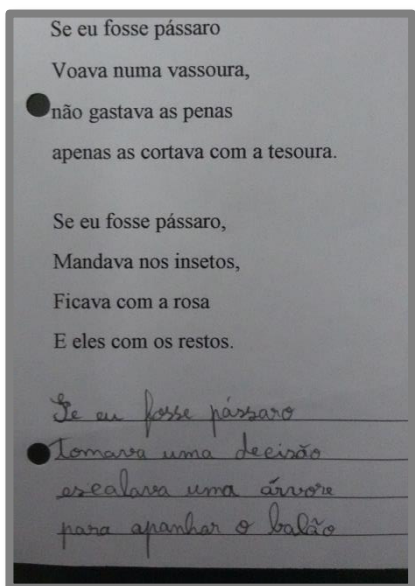 Se eu fosse pássaro
Voava numa vassoura,
não gastava as penas
apenas as cortava com a tesoura.
Se eu fosse pássaro,
Mandava nos insetos,
Ficava com a rosa
E eles com os restos.
Se eu fosse pássaro
Tomava uma decisão
escalava uma árvore
para apanhar o balão